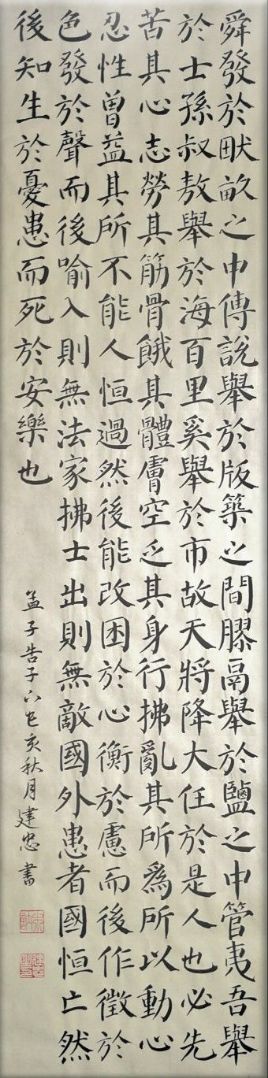 舜發於畎畝之中傳說舉於版築之間膠鬲舉於鹽之中管夷吾舉
於士孫叔敖舉於海百里奚舉於市故天將降大任於是人也必先
苦其心志勞其筋骨餓其體膚空乏其身行拂亂其所為所以動心
忍性曾益其所不能人恒過然後能改困於心衡於慮而後作徵於
色發於聲而後喻入則無法家拂士出則無敵國外患者國恒亡然
後知生於憂患而死於安樂也
孟子告子下己亥秋月建忠書